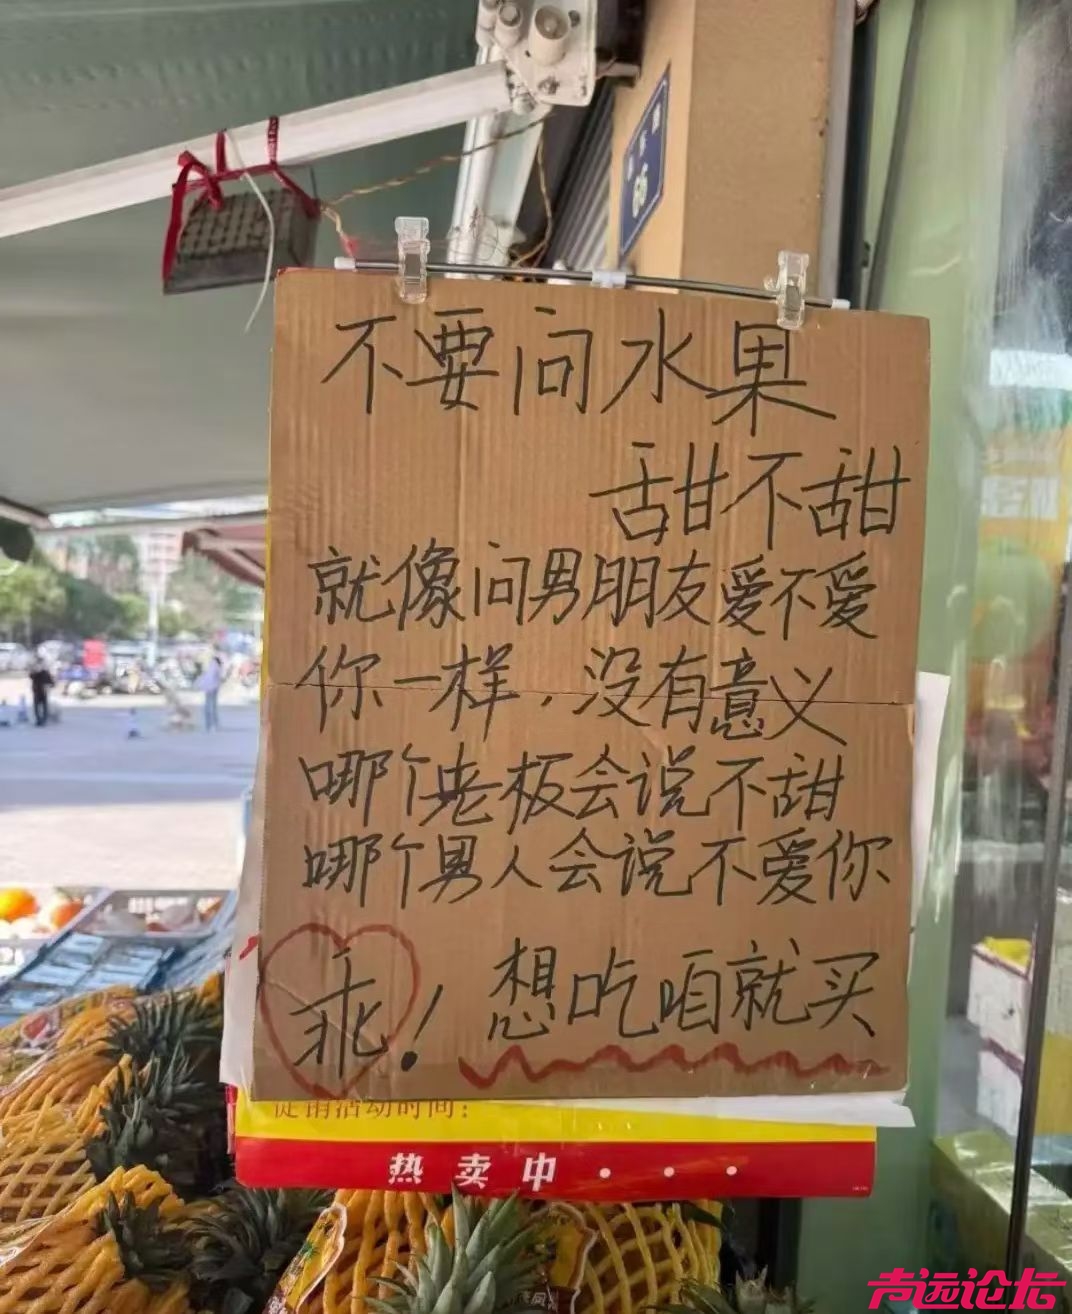 不要问水果
甜不甜
就像问男朋友爱不爱
你一样，没有意义
哪个老板会说不甜
哪个男人会说不爱你
乖！想吃咱就买
促销活动时间：
热卖中···
66
声远论坛